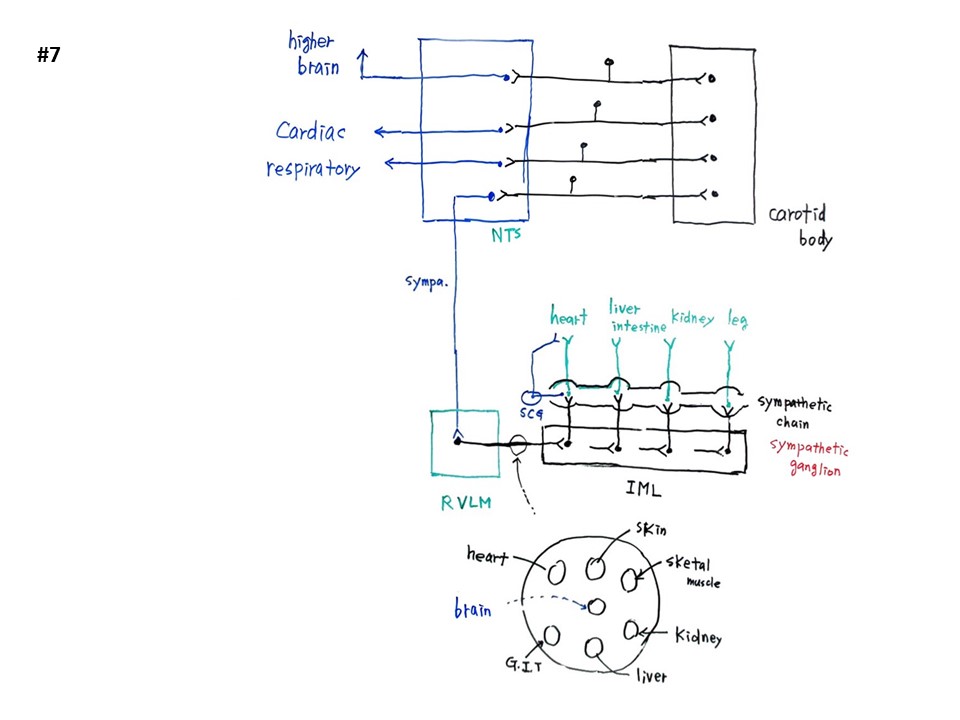 #7
higher
brain
Cardiac
respiratory
NTS
carotid
body
sympa.
heart
liver
intestine
kidney
leg
SCG
sympathetic
chain
sympathetic
ganglion
IML
RVLM
heart
skin
sketal
muscle
brain
Kidney
G.I.T
liver